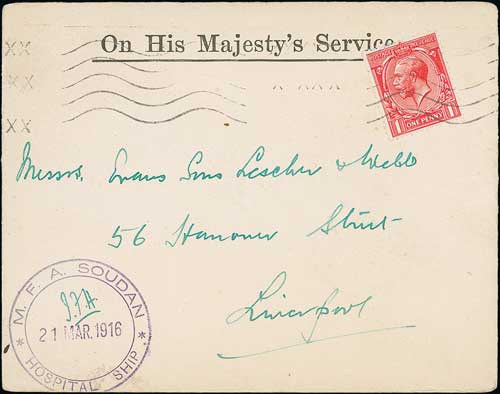 On His Majesty's Service.
XX
XX
X XXX
XX
ONE PENNY
1 1
Messrs. Evans Sons Lescher & Webb
56 Hanover Street
Liverpool
* M. F. A. SOUDAN *
21 MAR. 1916
HOSPITAL SHIP